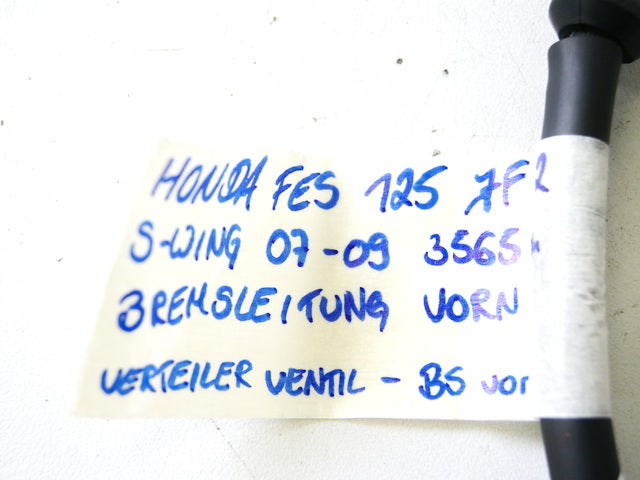 HONDA FES 125 JF2
S-WING 07-09 3565
BREMSLEITUNG VORN
VERTEILER VENTIL - BS vor